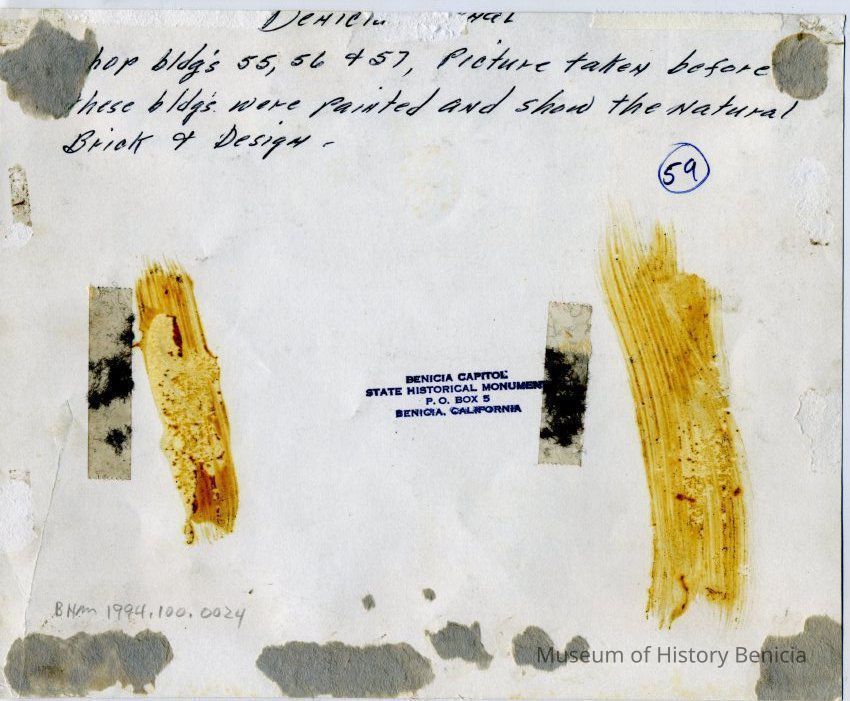 Benicia
hop bldg's 55, 56 & 57, Picture taken before
these bldg's. were painted and show the natural
Brick & Design -
59
BENICIA CAPITOL
STATE HISTORICAL MONUMENT
P. O. BOX 5
BENICIA, CALIFORNIA
BHM 1994.100.0024
Museum of History Benicia